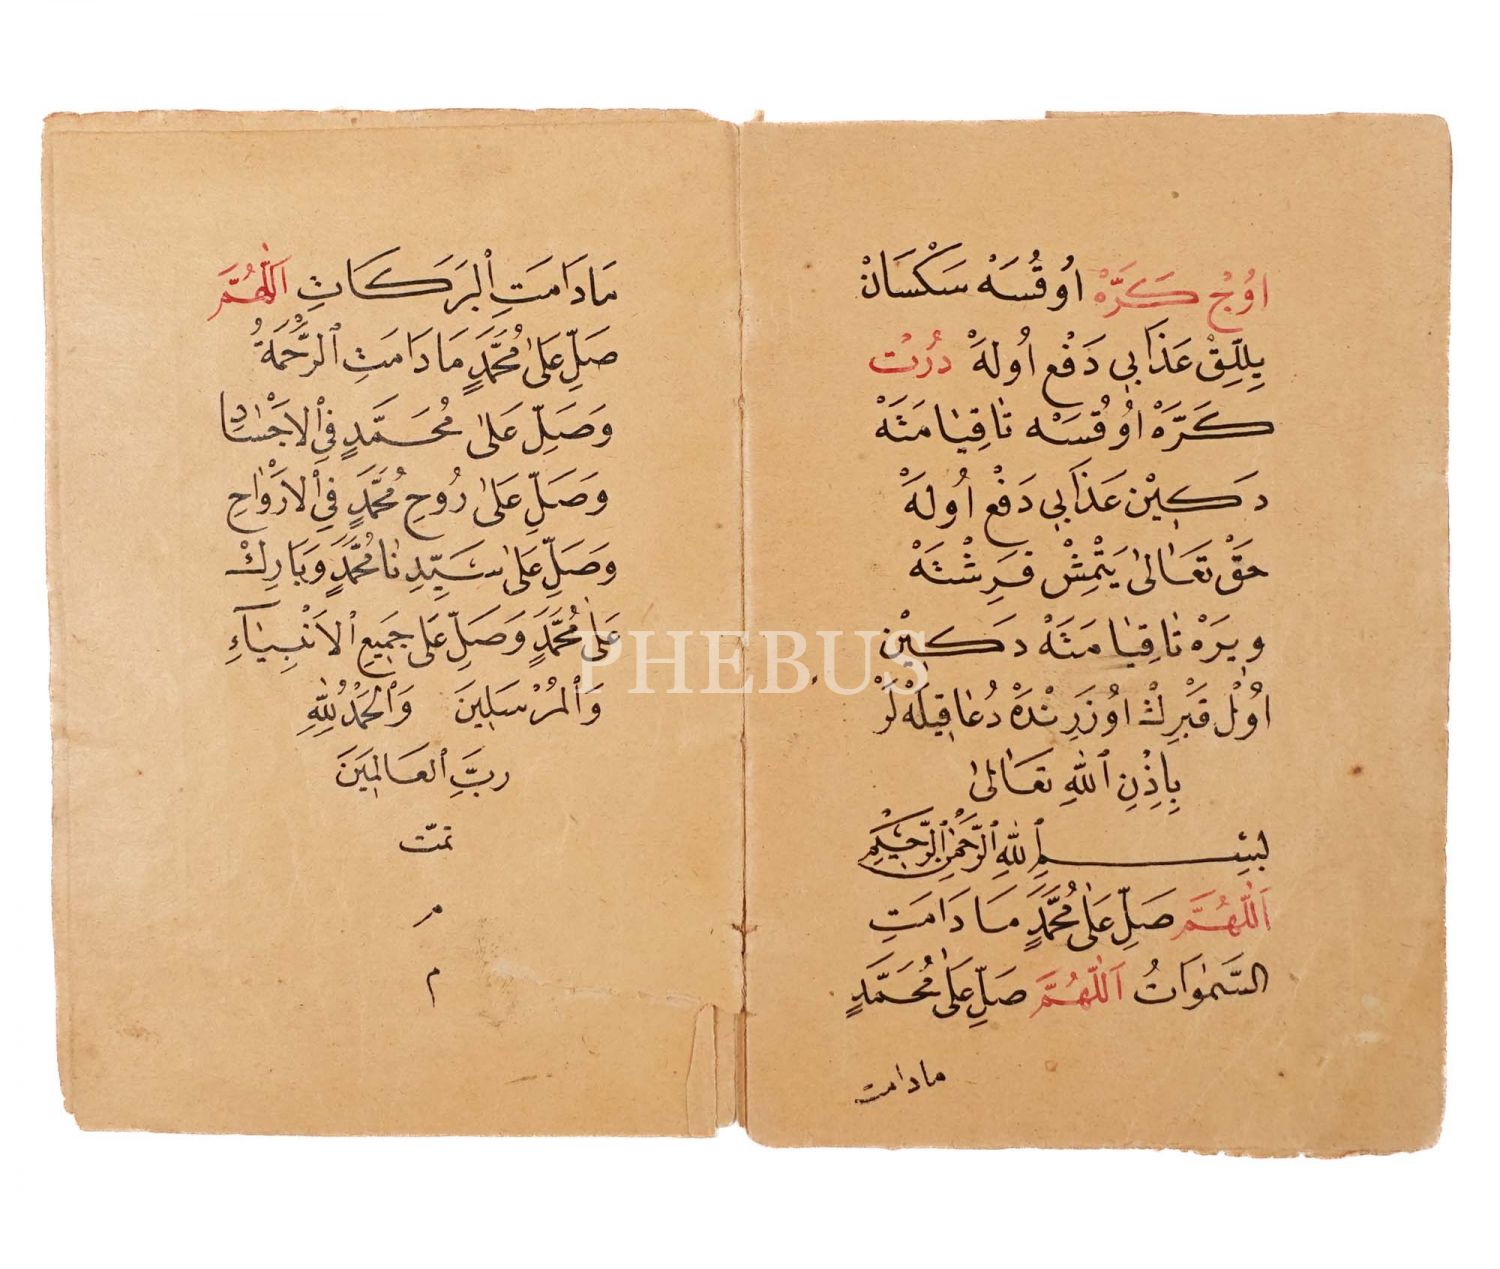 اوُجْ كَرَّهْ اوُقُسَهْ سَكْسَانْ
يِللِقْ عَذَابِى دَفْعِ اوُلهَ دُرْتْ
كَرَّهْ اوُقُسَهْ تَاقِيَامَتَهْ
دَكِيْن عَذَابِى دَفْعِ اوُلهَ
حَقْ تَعَالىٰ يَتْمِشْ فَرِشْتَهْ
وِيرَهْ تَاقِيَامَتَهْ دَكِيْن
اوُلْ قَبْرِكْ اوُزَرِنْدَهْ دُعَا قِيلَهْ لَرْ
بِاِذْنِ ٱللهِ تَعَالىٰ
بِسْمِ ٱللهِ ٱلرَّحْمٰنِ ٱلرَّحِيْمِ
اَللّٰهُمَّ صَلِّ عَلىٰ مُحَمَّدٍ مَا دَامَتِ
السَّمٰوَاتُ اَللّٰهُمَّ صَلِّ عَلىٰ مُحَمَّدٍ
مادامت
مَادَامَتِ ٱلْبَرَكَاتِ اَللّٰهُمَّ
صَلِّ عَلىٰ مُحَمَّدٍ مَا دَامَتِ ٱلرَّحْمَةُ
وَصَلِّ عَلىٰ مُحَمَّدٍ فِي ٱلاَجْسَادِ
وَصَلِّ عَلىٰ رُوحِ مُحَمَّدٍ فِي ٱلاَرْوَاحِ
وَصَلِّ عَلىٰ سَيِّدِنَا مُحَمَّدٍ وَبَارِكْ
عَلىٰ مُحَمَّدٍ وَصَلِّ عَلىٰ جَمِيعِ ٱلاَنْبِيَآءِ
وَٱلْمُرْسَلِينَ وَٱلْحَمْدُ لِلّٰهِ
رَبِّ ٱلعَالَمِينَ
تمّت
م
م
PHEBUS